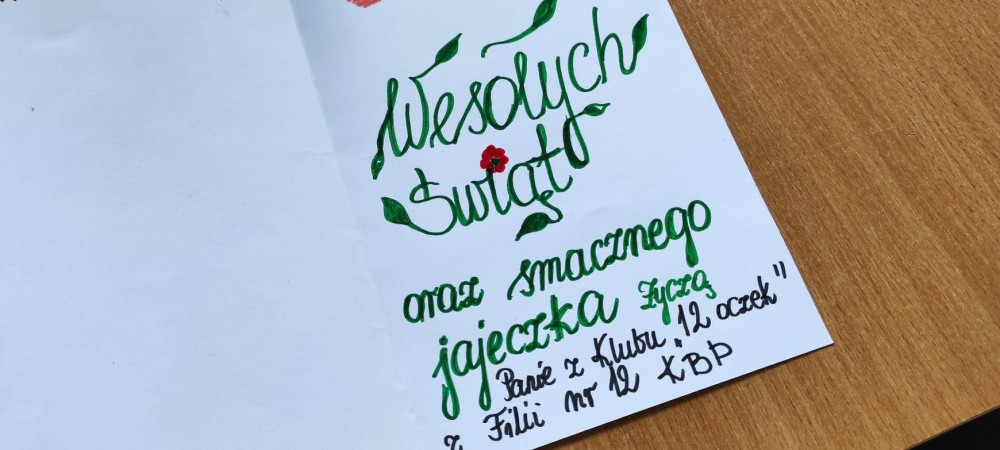 Wesołych
Świąt
oraz smacznego
jajeczka życzą
Panie z Klubu "12 oczek"
z Filii nr 12 ŁBP